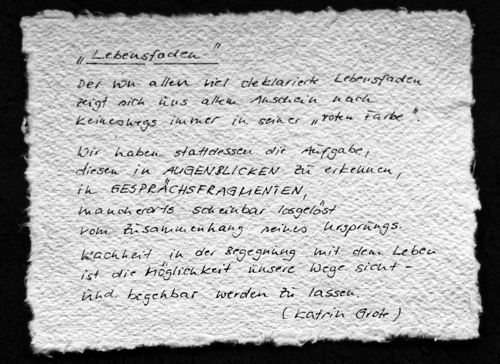 „Lebensfaden"
Der von allen viel deklarierte Lebensfaden
zeigt sich uns allem Anschein nach
keineswegs immer in seiner „roten Farbe".
Wir haben stattdessen die Aufgabe,
diesen in AUGENBLICKEN zu erkennen,
in GESPRÄCHSFRAGMENTEN,
mancherorts scheinbar losgelöst
vom Zusammenhang seines Ursprungs.
Wachheit in der Begegnung mit dem Leben
ist die Möglichkeit unsere Wege sicht-
und begehbar werden zu lassen.
(Katrin Grote)